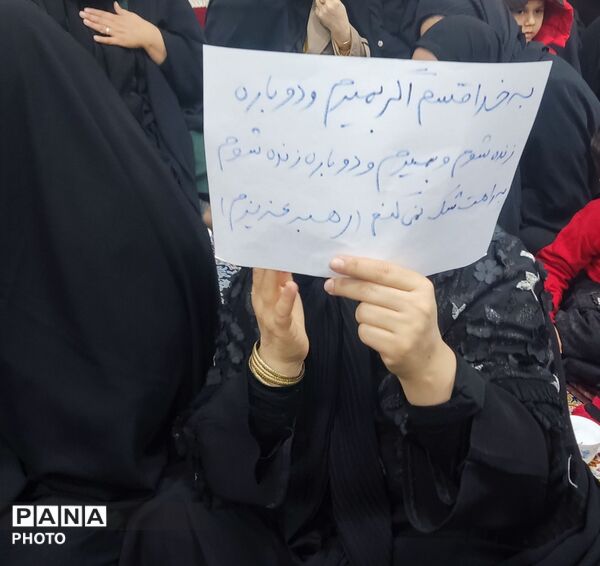 به خدا قسم اگر بمیرم و دوباره
زنده شوم و بمیرم و دوباره زنده شوم
به راهت شک نمی کنم (رهبر عزیزم)
PANA
PHOTO